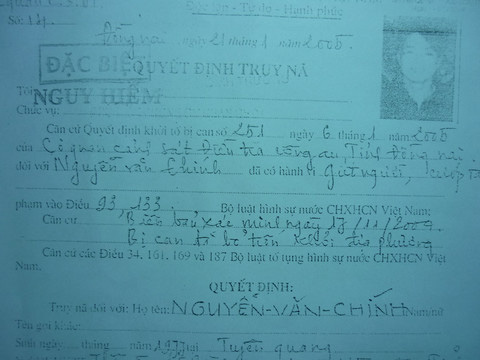 Độc lập - Tự do - Hạnh phúc
Số: 121
Đồng nai ngày 21 tháng 1 năm 2005.
ĐẶC BIỆT
QUYẾT ĐỊNH TRUY NÃ
NGUY HIỂM
Tôi
Chức vụ:
Căn cứ Quyết định khởi tố bị can số 251 ngày 6 tháng 1 năm 2005
của Cơ quan cảnh sát Điều tra công an Tỉnh Đồng nai.
đối với Nguyễn văn Chính đã có hành vi Giết người, cướp
phạm vào Điều 93, 133 Bộ luật hình sự nước CHXHCN Việt Nam;
Căn cứ Biên bản xác minh ngày 17/11/2004
Bị can đã bỏ trốn khỏi địa phương
Căn cứ các Điều 34, 161, 169 và 187 Bộ luật tố tụng hình sự nước CHXHCN Việt
Nam.
QUYẾT ĐỊNH:
Truy nã đối với: Họ tên: NGUYỄN-VĂN-CHÍNH Nam/nữ
Tên gọi khác:
Sinh ngày tháng năm 1977 tại Tuyên quang